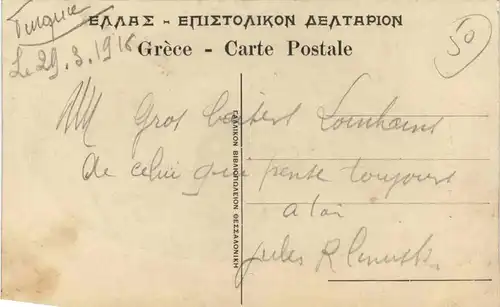 Turquie
Le 29.3.1916
ΕΛΛΑΣ - ΕΠΙΣΤΟΛΙΚΟΝ ΔΕΛΤΑΡΙΟΝ
Grèce - Carte Postale
50
Gros
de celui qui pense toujours
a toi
Jules R
ΓΑΛΛΙΚΟΝ ΒΙΒΛΙΟΠΩΛΕΙΟΝ ΘΕΣΣΑΛΟΝΙΚΗ